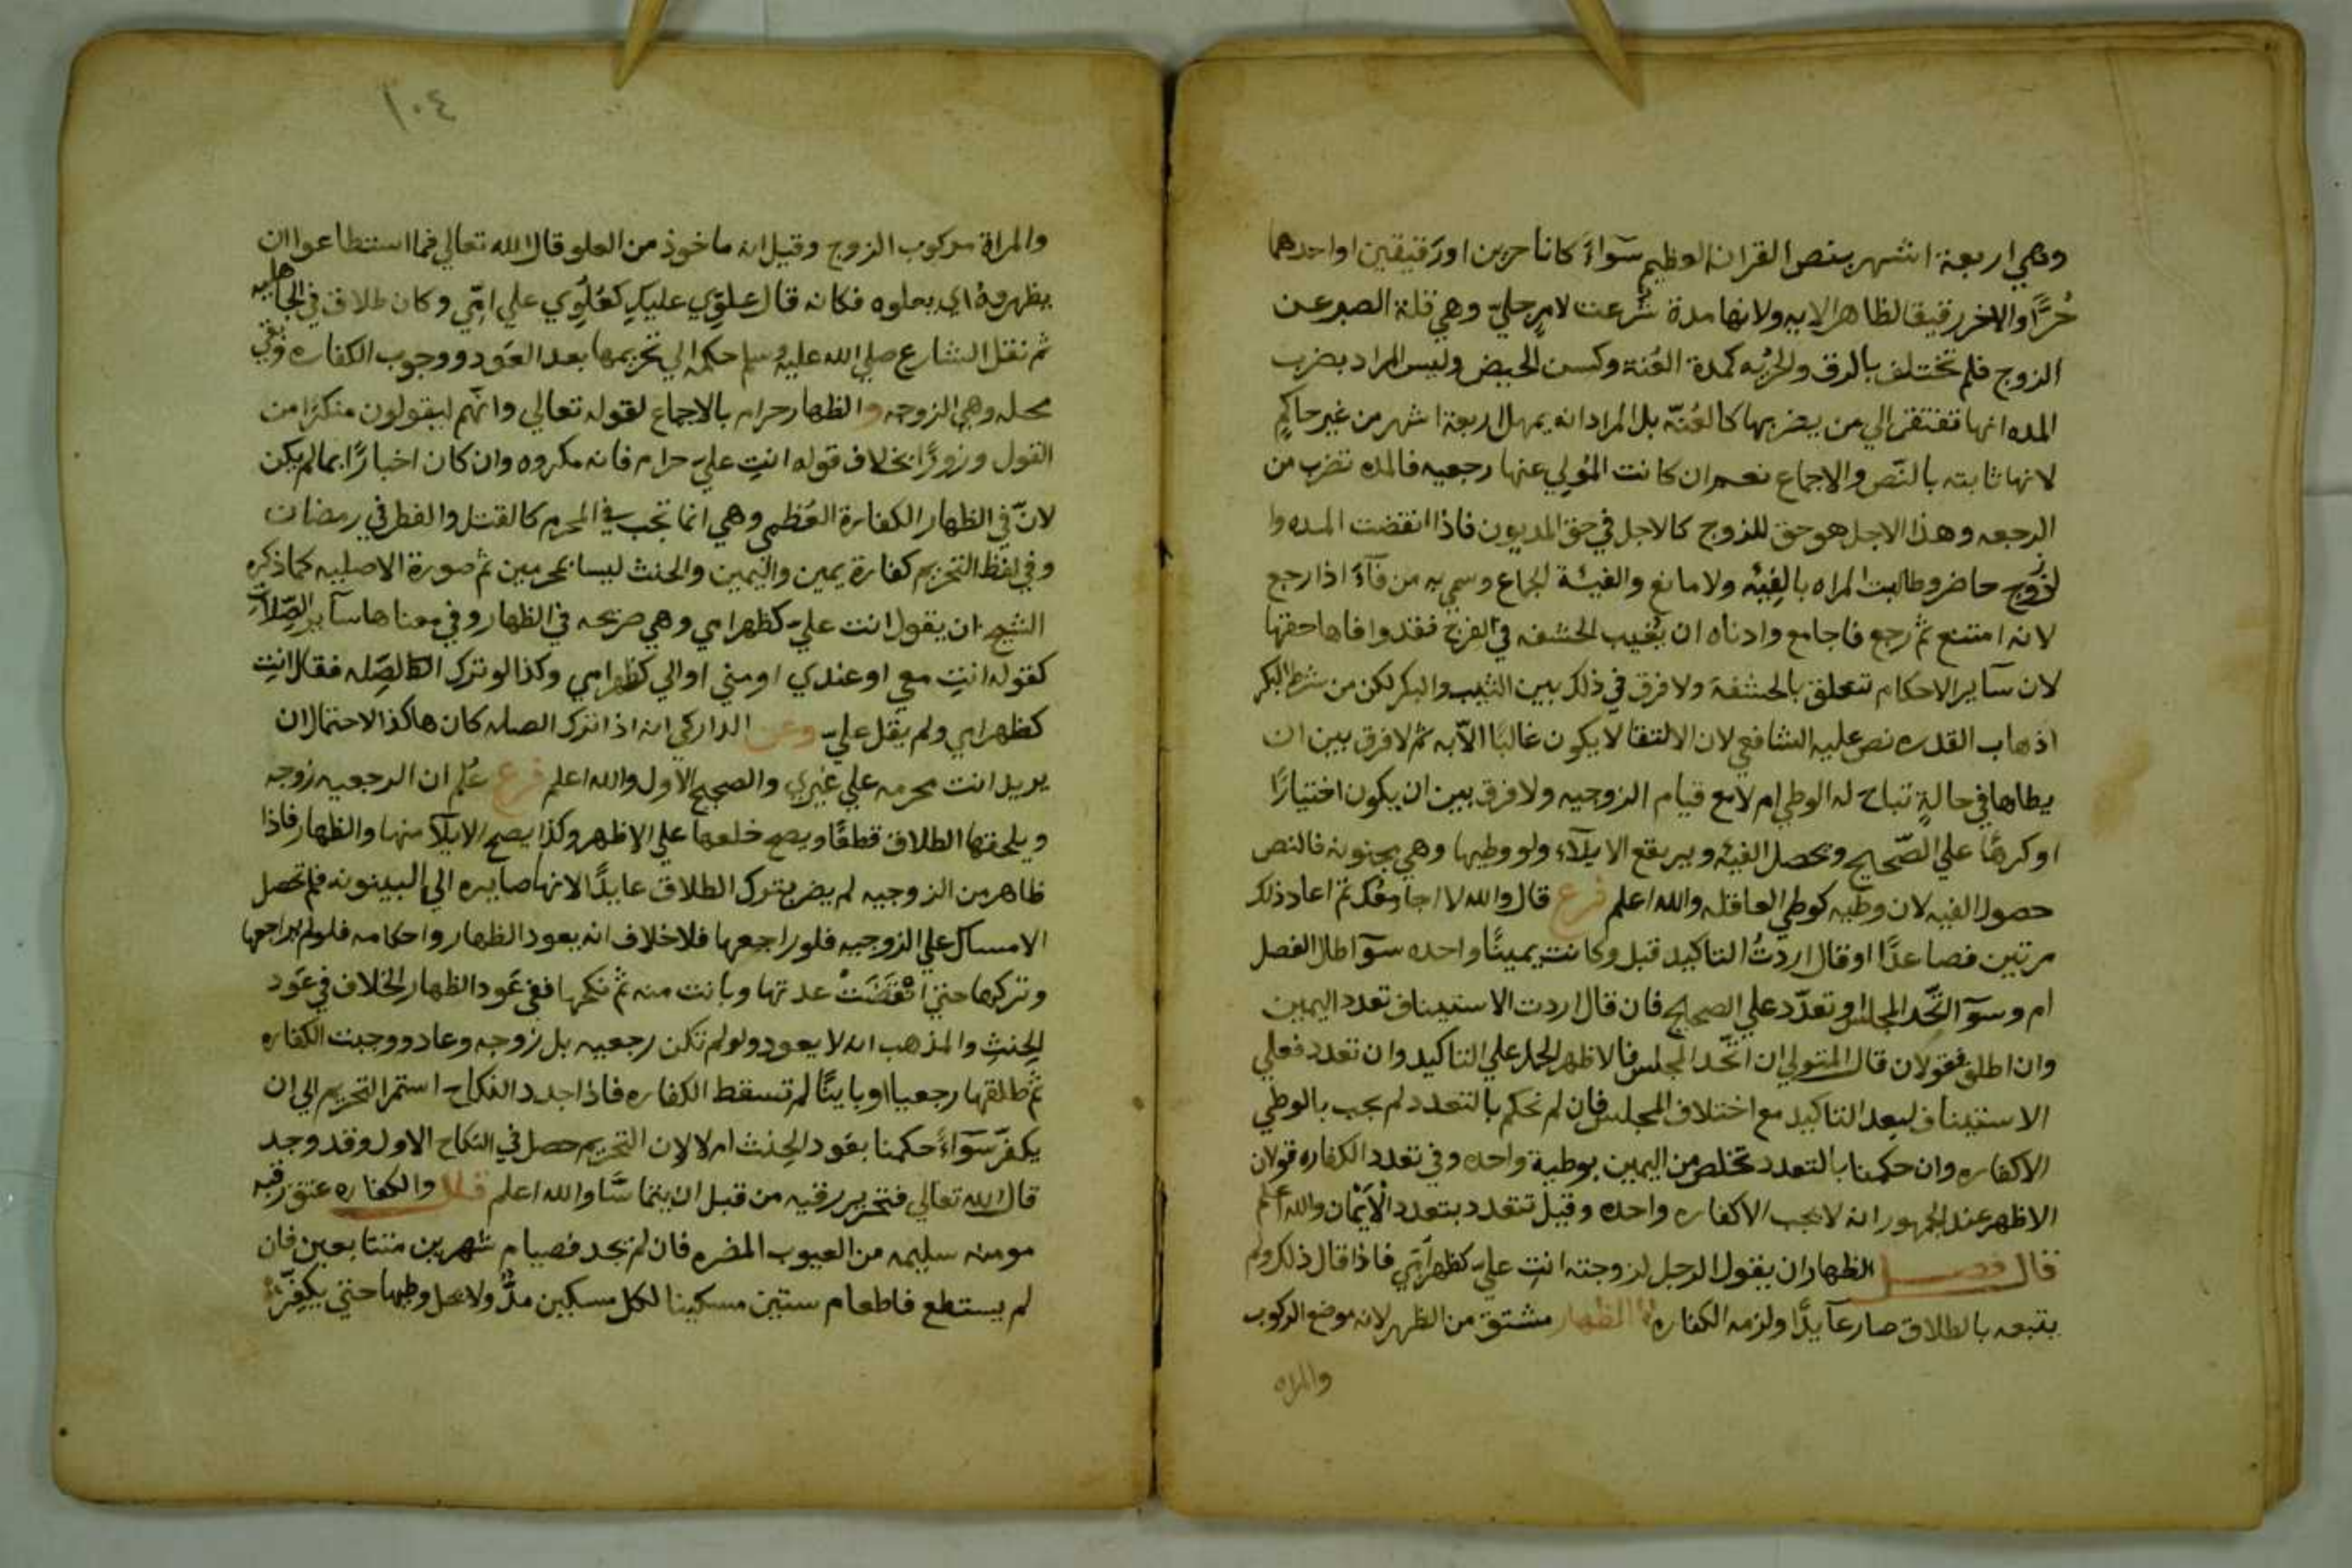 وهي اربعة اشهر بنص القران العظيم سوآءً كانا حرين او رقيقين او احدهما
حُرًّا والاخر رقيقا لظاهر الايه ولانها مدة شُرعت لامرٍ جليّ وهي قلة الصبر عن
الزوج فلم تختلف بالرق والحريه كمدة العُنة وكسن الحيض وليس المراد بضرب
المده انها تفتقر الي من يضربها كالعُنّه بل المراد انه يمهل اربعة اشهر من غير حاكمٍ
لانها ثابته بالنّص والاجماع نعم ان كانت المُولي عنها رجعيه فالمده تضرب من
الرجعه وهذا الاجل هو حق للزوج كالاجل في حق المديون فاذا انقضت المده وا
لزوج حاضر وطالبت المراه بالفيئه ولا مانع والفيئة الجماع وسمي به من فآءَ اذا رجع
لانه امتنع ثم رجع فاجامع وادناه ان يُغيب الحشفه في الفرج فقد وافاها حقها
لان سآير الاحكام تتعلق بالحشفة ولا فرق في ذلك بين الثيب والبكر لكن من شرط البكر
اذهاب القدره نص عليه الشافعي لان الالتقا لا يكون غالبًا الاّ به ثم لا فرق بين ان
يطاها في حالةٍ تباح له الوطي ام لا مع قيام الزوجيه ولا فرق بين ان يكون اختيارًا
او كرهًا علي الصّحيح وتحصل الفيئه ويرتفع الايلآء ولو وطيها وهي مجنونه فالنص
حصول الفيه لان وطيه كوطي العاقله والله اعلم فرع قال والله لا اجامعك ثم اعاد ذلك
مرتين فصاعدًا او قال اردتُ التاكيد قبل وكانت يمينًا واحده سوآ طال الفصل
ام وسوآ اتّحد المجلس او تعدّد علي الصحيح فان قال اردت الاستيناف تعدد اليمين
وان اطلق فقولان قال المتولي ان اتّحد المجلس فالاظهر الحمل علي التاكيد وان تعدد فعلي
الاستيناف لبعد التاكيد مع اختلاف المجلس فان لم نحكم بالتعدد لم يجب بالوطي
الا كفاره وان حكمنا بالتعدد تخلص من اليمين بوطية واحده وفي تعدد الكفاره قولان
الاظهر عند الجمهور انه لا يجب الا كفاره واحده وقيل تتعدد بتعدد الأَيْمان والله اعلم
قال فصل الظهار ان يقول الرجل لزوجته انت عليّ كظهر اُمّي فاذا قال ذلك ولم
يتبعه بالطلاق صار عآيدًا ولزمه الكفاره الظهار مشتق من الظهر لانه موضع الركوب
والمراه
١٠٤
والمراة مركوب الزوج وقيل انه ماخوذ من العلو قال الله تعالي فما استطاعوا ان
يظهروهُ اي يعلوه فكانه قال علوّي عليكِ كعُلُوّي علي امّي وكان طلاق في الجاهليه
ثم نقل الشارع صلي الله عليه وسلم حكمه الي تحريمها بعد العَود ووجوب الكفاره وبقي
محله وهي الزوجه والظهار حرام بالاجماع لقوله تعالي وانّهم ليقولون منكرًا من
القول وزورًا بخلاف قوله انتِ عليّ حرام فانه مكروه وان كان اخبارًا بما لم يكن
لانّ في الظهار الكفارة العُظمي وهي انما تجب في المحرم كالقتل والفطر في رمضان
وفي لفظ التحريم كفارة يمين واليمين والحنث ليسا بمحرمين ثم صورة الاصليه كما ذكره
الشيخ ان يقول انت عليّ كظهر امي وهي صريحه في الظهار وفي معناها سآير الصّلات
كقوله انتِ معي او عندي او مني او الي كظهر امي وكذا لو ترك الصّله فقال انتِ
كظهر امي ولم يقل عليّ وعن الداركي انه اذا ترك الصله كان هاكذا لاحتمال ان
يريد انت محرمه علي غيري والصحيح الاول والله اعلم فرع عُلم ان الرجعيه زوجه
ويلحقها الطلاق قطعًا ويصح خلعها علي الاظهر وكذا يصح الايلآ منها والظهار فاذا
ظاهر من الزوجيه لم يضر بترك الطلاق عايدًا لانها صايره الي البينونه فلم تحصل
الامساك علي الزوجيه فلو راجعها فلا خلاف انه يعود الظهار واحكامه فلو لم يراجعها
وتركها حتي انْقَضَتْ عدتها وبانت منه ثم نكحها ففي عَود الظهار الخلاف في عَود
الحِنثِ والمذهب انه لا يعود ولو لم تكن رجعيه بل زوجه وعاد ووجبت الكفاره
ثم طلقها رجعيا او باينًا لم تسقط الكفاره فاذا جدد النكاح استمر التحريم الي ان
يكفّر سَوآءً حكمنا بعَود الحِنث ام لا لان التحريم حصل في النكاح الاول وقد وجد
قال الله تعالي فتحرير رقبه من قبل ان يتماسّا والله اعلم قال والكفاره عتق رقبه
مومنه سليمه من العيوب المضره فان لم يجد فصيام شهرين متتابعين فان
لم يستطع فاطعام ستين مسكينا لكل مسكين مدٌّ ولا يحل وطيها حتي يكفّر